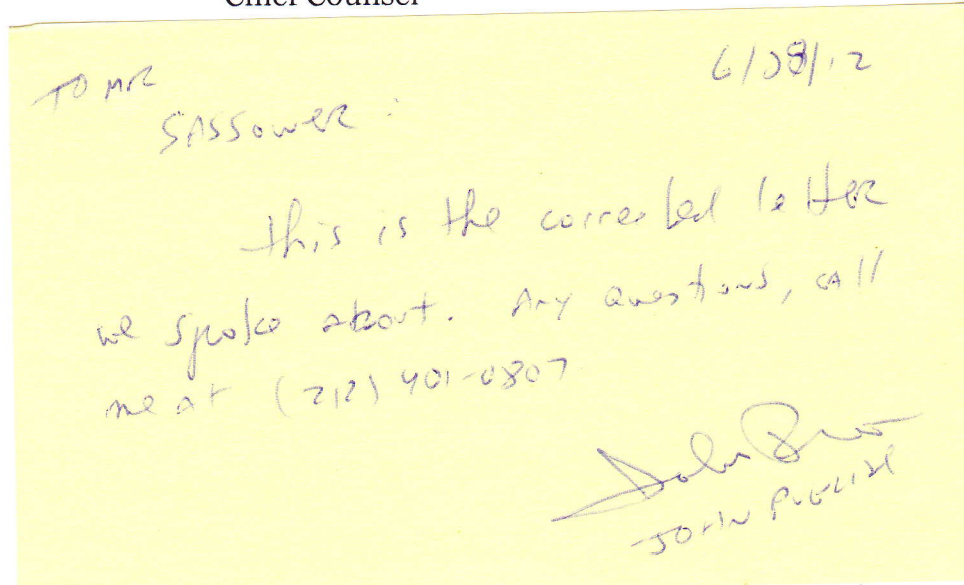 Chief Counsel
TO MR 6/28/12
SASSOWER:
this is the corrected letter
we spoke about. Any questions, call
me at (212) 401-0807
John
JOHN